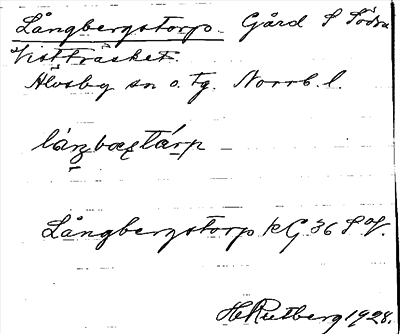 Långbergstorp. Gård S Södra
Vistträsket.
Älvsby sn o. tg. Norrb. l.
Långbergstorp kG 36 S of.
H Rutberg 1928.